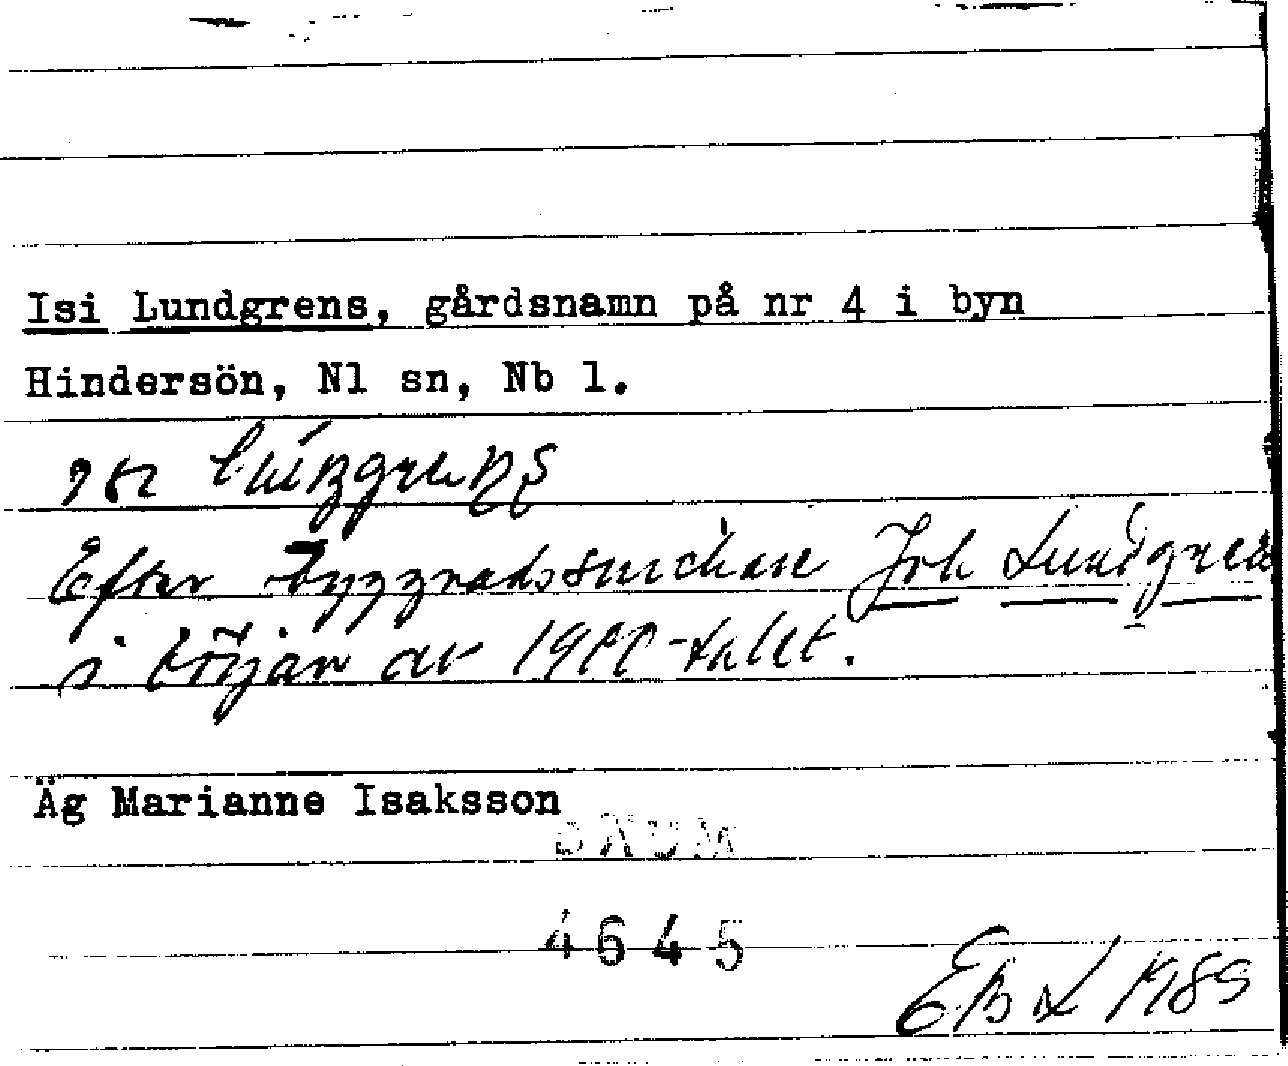 Isi Lundgrens, gårdsnamn på nr 4 i byn
Hindersön, Nl sn, Nb l.
Efter byggnadssnickare Joh Lundgren
i början av 1900-talet.
Äg Marianne Isaksson
DAUM
4645
EBL 1989